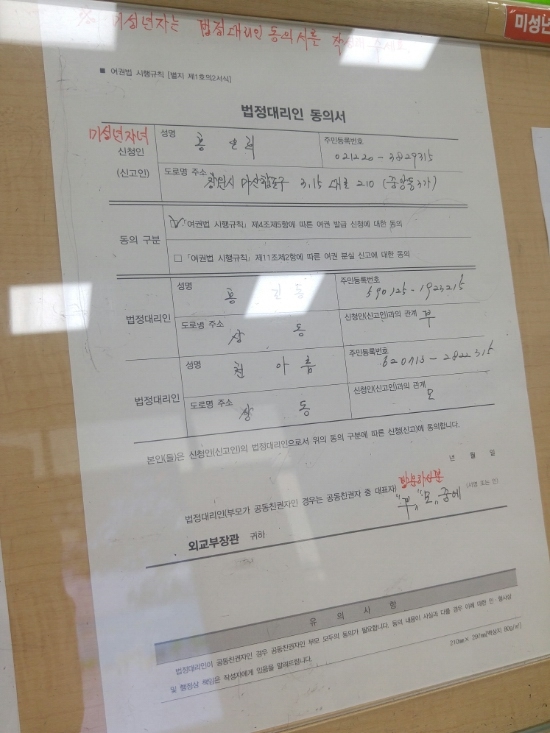 미성년자는 법정대리인 동의서를
미성년
■ 여권법 시행규칙 [별지 제1호의2서식]
법정대리인 동의서
미성년자녀
신청인
(신고인)
성명
용
주민등록번호
021220-3829315
도로명 주소
창원시 마산합포구 3.15대로 210 (중앙동3가)
동의 구분
☑「여권법 시행규칙」 제4조제5항에 따른 여권 발급 신청에 대한 동의
□「여권법 시행규칙」 제11조제2항에 따른 여권 분실 신고에 대한 동의
법정대리인
성명
용
주민등록번호
590125-1923215
도로명 주소
상 동
신청인(신고인)과의 관계
부
법정대리인
성명
천 아름
주민등록번호
620713-2822315
도로명 주소
상 동
신청인(신고인)과의 관계
모
본인(들)은 신청인(신고인)의 법정대리인으로서 위의 동의 구분에 따른 신청(신고)에 동의합니다.
년 월 일
법정대리인(부모가 공동친권자인 경우는 공동친권자 중 대표자)
"부", "모" 중에
(서명 또는 인)
외교부장관 귀하
유 의 사 항
법정대리인이 공동친권자인 경우 공동친권자인 부모 모두의 동의가 필요합니다. 동의 내용이 사실과 다를 경우 이에 대한 민·형사상
및 행정상 책임은 작성자에게 있음을 알려드립니다.
210mm×297mm[백상지 80g/㎡]